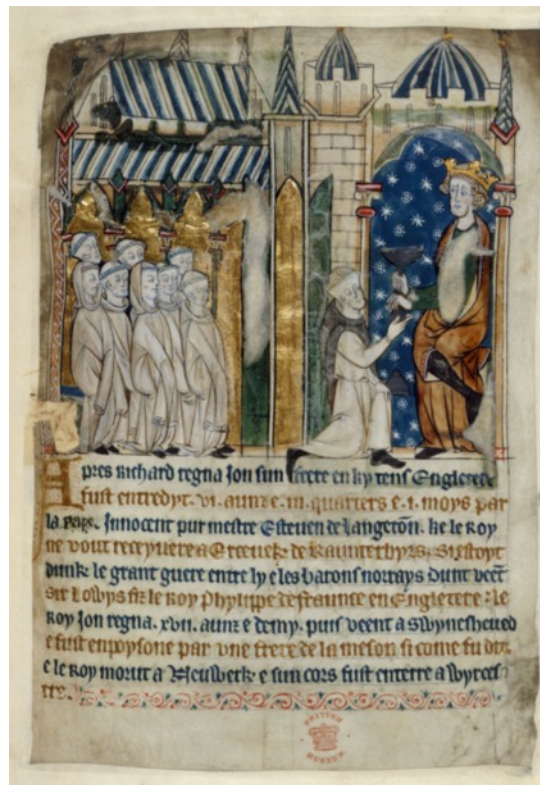 Apres Richard regna Jon sun frere en ky tens Engletere
fust entredyt. vi. aunz e. iii. quarters e. i. moys par
la pape. Innocent pur mestre Esteuen de langeton. ke le Roy
ne vout receyuere a Erceuek de Kaunterbyrs. Si estoyt
dunk le grant guere entre ly e les barons norrays dunt veent
sir Lowys fiz le Roy Phylippe de fraunce en Engletere: le
Roy Jon regna. xvii. aunz e demy. puis veent a Swynesheued
e fust enpoysone par une frere de la meson si come fu dit
e le Roy morut a Neuwerk e sun cors fust enterre a Wyrces
tre.
BRITISH
MUSEUM